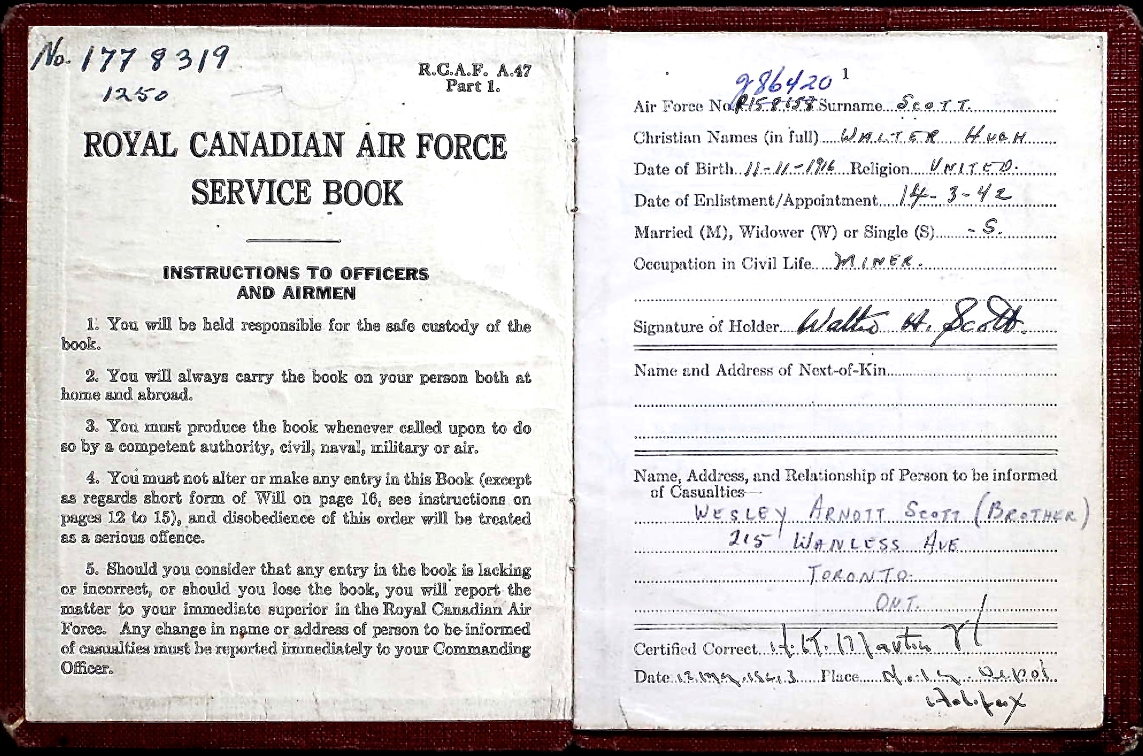 No. 1778319
1250
R.C.A.F. A.47
Part 1.
ROYAL CANADIAN AIR FORCE
SERVICE BOOK
INSTRUCTIONS TO OFFICERS
AND AIRMEN
1. You will be held responsible for the safe custody of the
book.
2. You will always carry the book on your person both at
home and abroad.
3. You must produce the book whenever called upon to do
so by a competent authority, civil, naval, military or air.
4. You must not alter or make any entry in this Book (except
as regards short form of Will on page 16, see instructions on
pages 12 to 15), and disobedience of this order will be treated
as a serious offence.
5. Should you consider that any entry in the book is lacking
or incorrect, or should you lose the book, you will report the
matter to your immediate superior in the Royal Canadian Air
Force. Any change in name or address of person to be informed
of casualties must be reported immediately to your Commanding
Officer.
1
J86420
Air Force No. Surname SCOTT.
Christian Names (in full) WALTER HUGH
Date of Birth 11-11-1916 Religion UNITED.
Date of Enlistment/Appointment 14-3-42
Married (M), Widower (W) or Single (S) -S.
Occupation in Civil Life MINER.
Signature of Holder Walter H. Scott.
Name and Address of Next-of-Kin
Name, Address, and Relationship of Person to be informed
of Casualties—
WESLEY ARNOTT SCOTT (BROTHER)
215 WANLESS AVE
TORONTO
ONT.
Certified Correct
Date Place Depot
Halifax